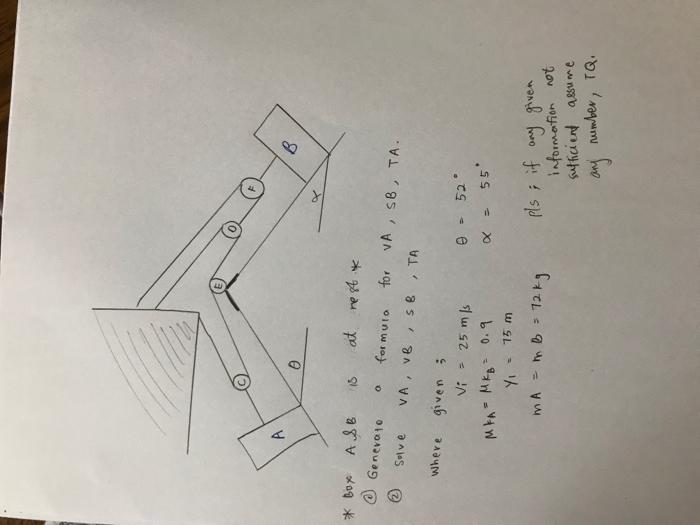 A
C
E
D
F
B
θ
α
* Box A & B is at rest *
① Generate a formula for VA, SB, TA.
② Solve VA, VB, SB, TA
Where given ;
Vi = 25 m/s θ = 52°
MKA = MKB = 0.9 α = 55°
Y1 = 75 m
mA = mB = 72 kg
pls ; if any given
information not
sufficient assume
any number, TQ.